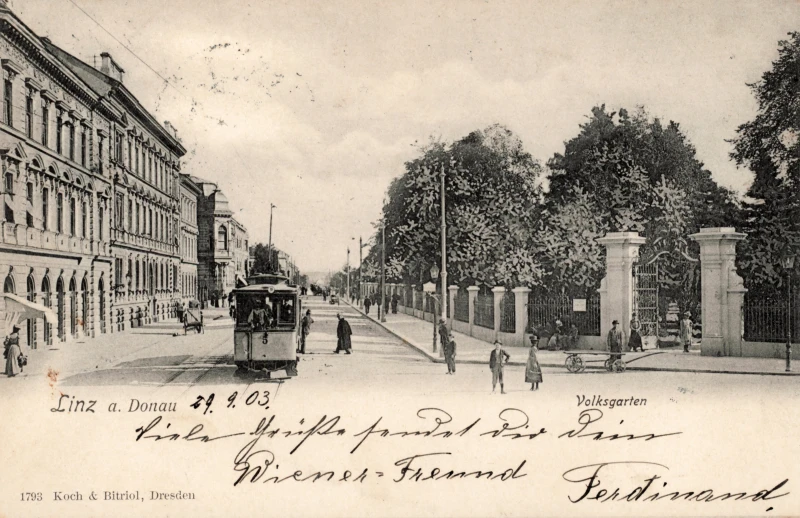 Linz a. Donau 29.9.03.
Volksgarten
Viele Grüße sendet dir dein
Wiener=Freund Ferdinand
1793 Koch & Bitriol, Dresden